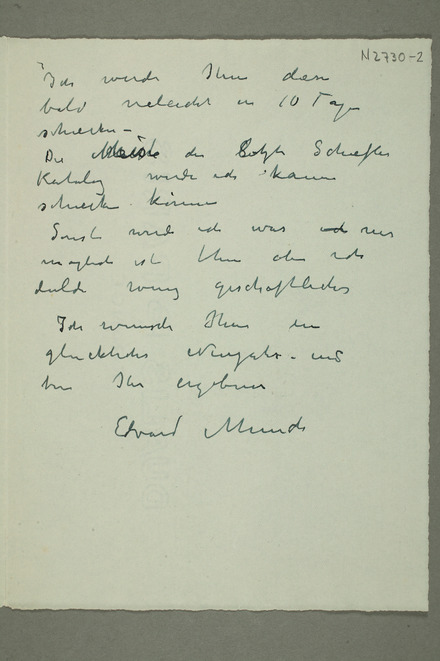 N2730-2
Ich werde Ihnen dann
bald vieleicht in 10 Tage
schicken –
Die der Schiefler
Katalog werde ich kaum
schicken können
Sonst werde ich was nur
möglich ist thun aber ich
wenig geschäftliches
Ich wünsche Ihnen ein
glückliches Neujahr – und
bin Ihr ergebener
Edvard Munch